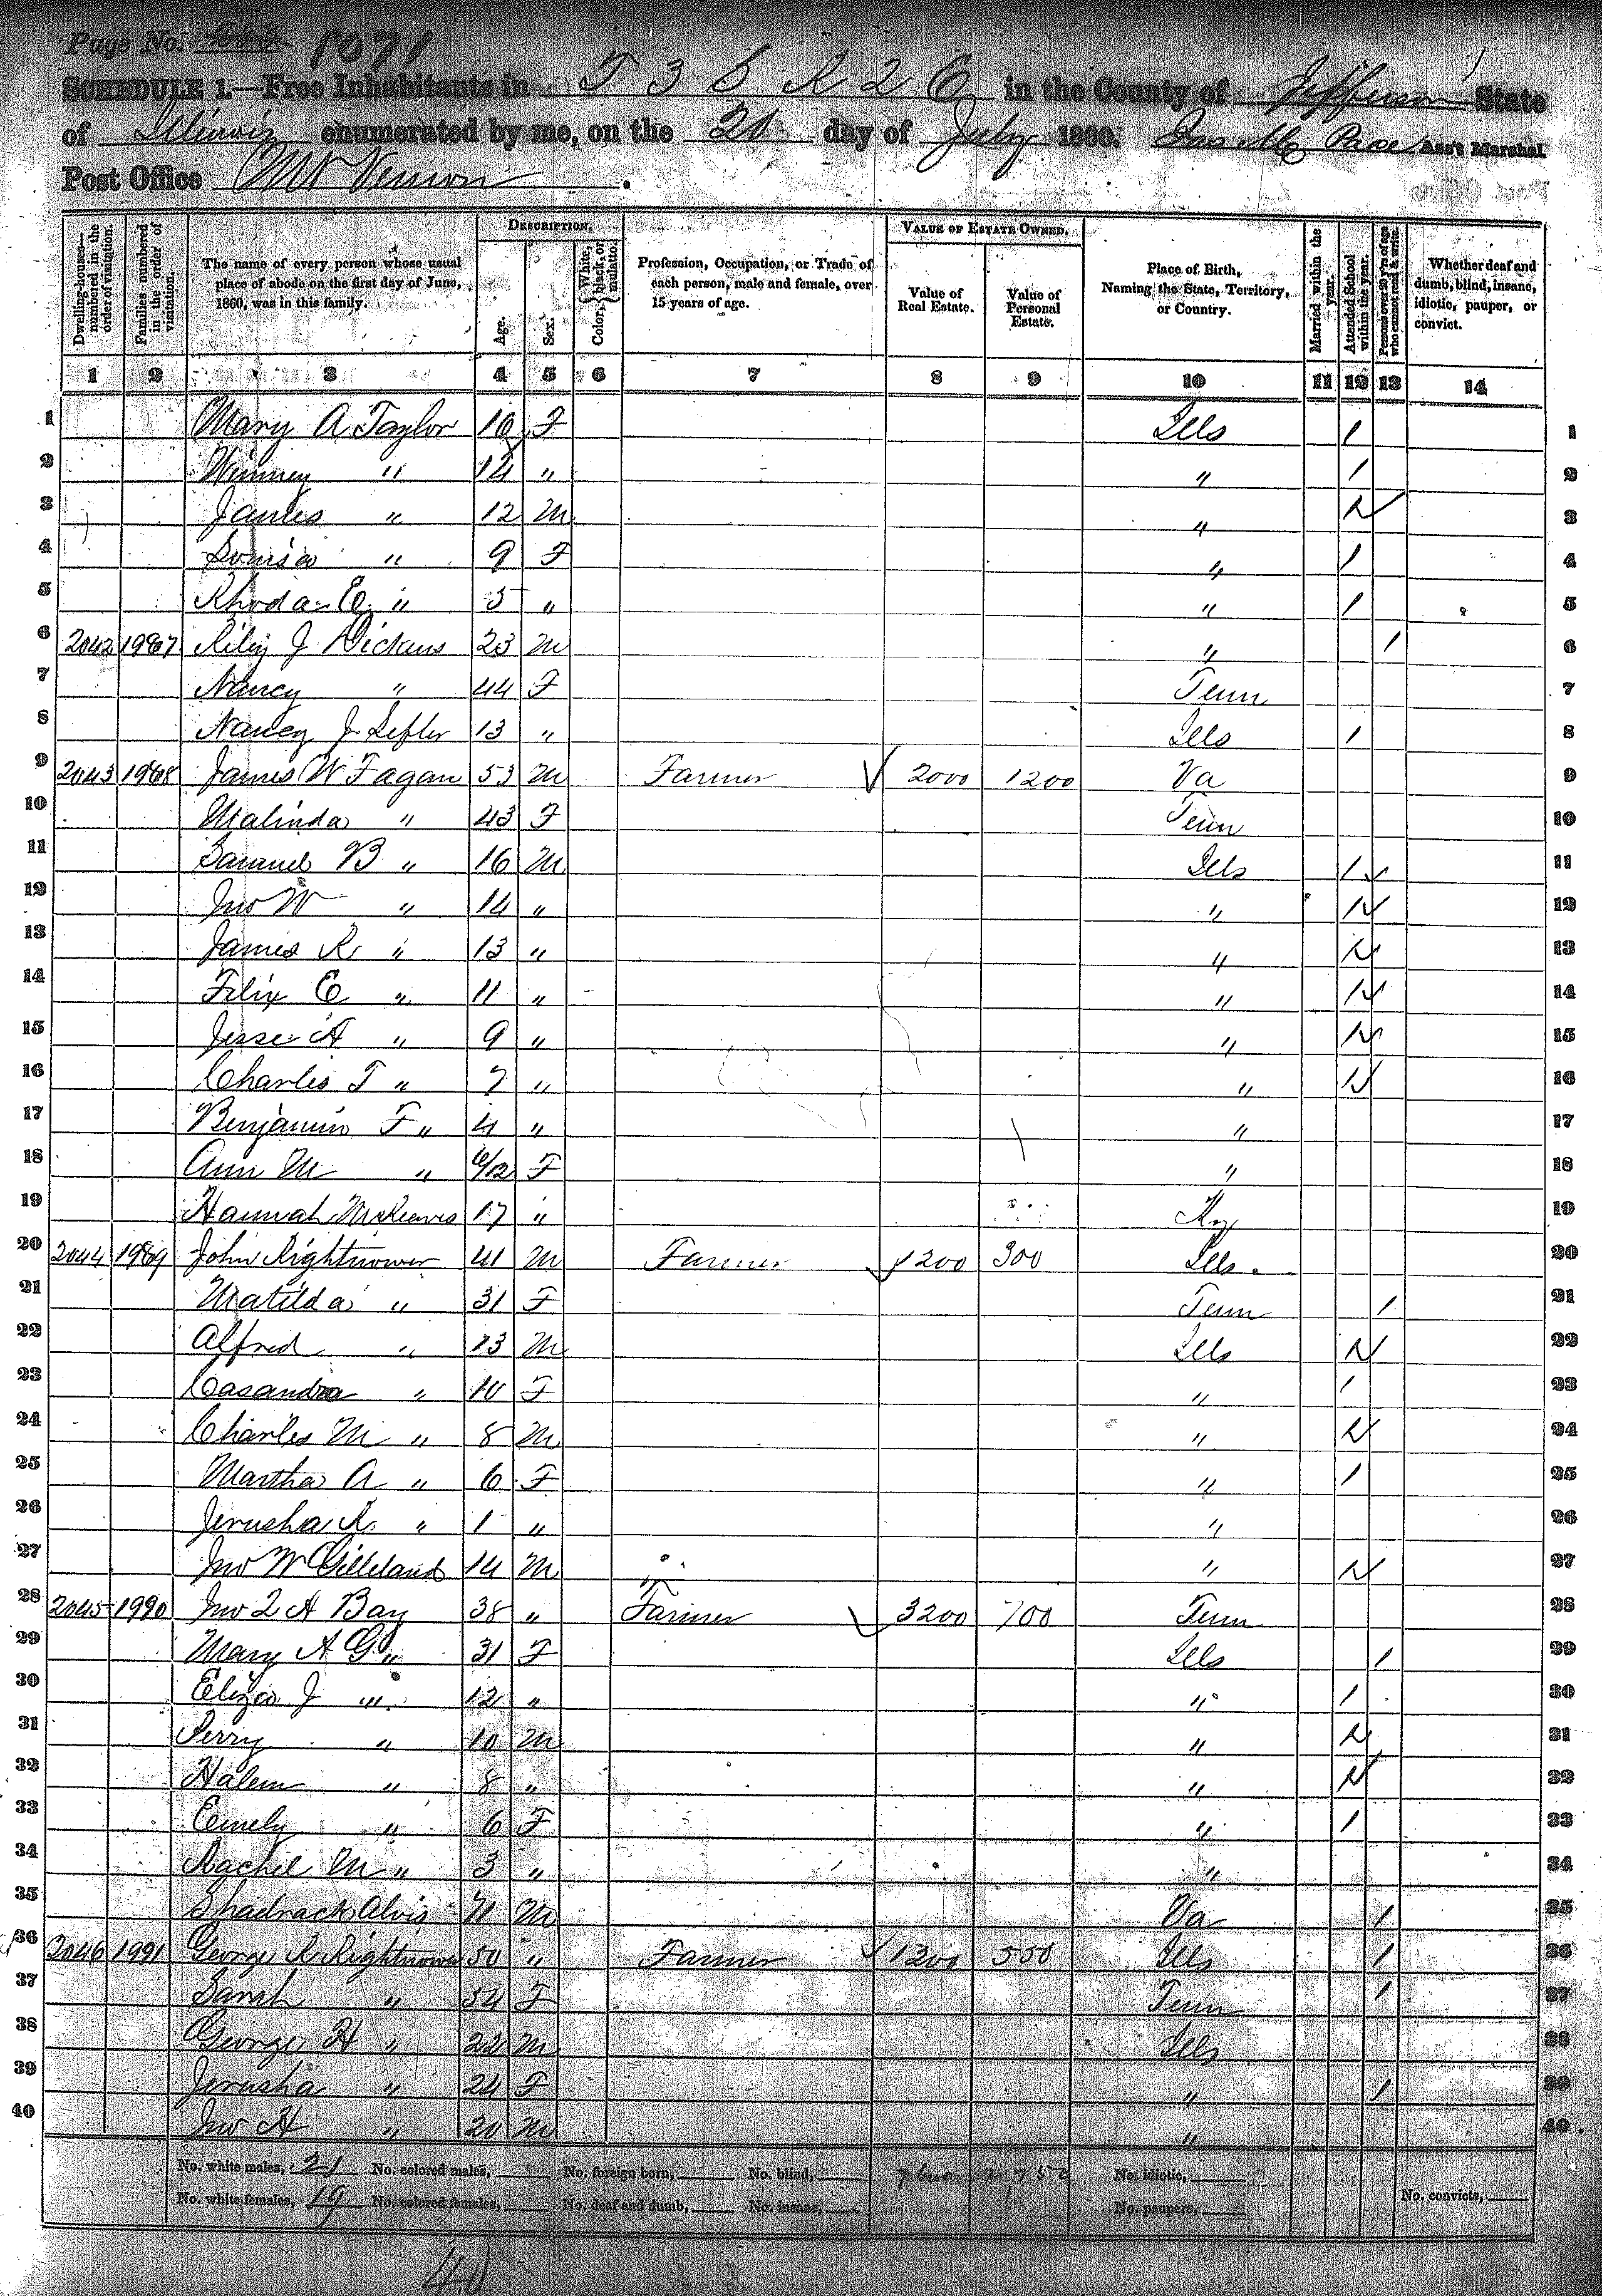 Page No. 283 1071
SCHEDULE 1.—Free Inhabitants in T 3 S R 2 E in the County of Jefferson State
of Illinois enumerated by me, on the 20 day of July 1860. Jno Mc Pace Ass't Marshal
Post Office Mt Vernon.
Dwelling-houses—numbered in the order of visitation. Families numbered in the order of visitation. The name of every person whose usual place of abode on the first day of June, 1860, was in this family. DESCRIPTION. Age. Sex. Color, White, black, or mulatto. Profession, Occupation, or Trade of each person, male and female, over 15 years of age. VALUE OF ESTATE OWNED. Value of Real Estate. Value of Personal Estate. Place of Birth, Naming the State, Territory, or Country. Married within the year. Attended School within the year. Persons over 20 y'rs of age who cannot read & write. Whether deaf and dumb, blind, insane, idiotic, pauper, or convict.
1 2 3 4 5 6 7 8 9 10 11 12 13 14
1 Mary A Taylor 16 F Ills 1 1
2 Winney " 14 " " 1 2
3 James " 12 M " 1 3
4 Louisa " 9 F " 1 4
5 Rhoda E " 5 " " 1 5
6 2042 1987 Riley J Dickens 23 M " 1 6
7 Nancy " 44 F Tenn 7
8 Nancy J Lefler 13 " Ills 1 8
9 2043 1988 James W Fagan 53 M Farmer 2000 1200 Va 9
10 Malinda " 43 F Tenn 10
11 Samuel B " 16 M Ills 1 11
12 Jno W " 14 " " 1 12
13 James R " 13 " " 1 13
14 Felix E " 11 " " 1 14
15 Jesse A " 9 " " 1 15
16 Charles T " 7 " " 1 16
17 Benjamin F " 4 " " 17
18 Ann M " 6/12 F " 18
19 Hannah 17 " Ky 19
20 2044 1989 John Rightnower 41 M Farmer 1200 300 Ills 20
21 Matilda " 31 F Tenn 1 21
22 Alfred " 13 M Ills 1 22
23 Casandra " 10 F " 1 23
24 Charles M " 8 M " 1 24
25 Martha A " 6 F " 1 25
26 Jerusha R " 1 " " 26
27 Jno W Gilleland 14 M " 1 27
28 2045 1990 Jno Q A Bay 38 " Farmer 3200 700 Tenn 28
29 Mary A G " 31 F Ills 1 29
30 Eliza J " 12 " " 1 30
31 Perry " 10 M " 1 31
32 Halem " 8 " " 1 32
33 Emely " 6 F " 1 33
34 Rachel M " 3 " " 34
35 Shadrack Alvis 71 M Va 1 35
36 2046 1991 George R Rightnower 50 " Farmer 1200 550 Ills 1 36
37 Sarah " 54 F Tenn 1 37
38 George H " 22 M Ills 38
39 Jerusha " 24 F " 1 39
40 Jno H " 20 M " 40
No. white males, 21 No. colored males, No. foreign born, No. blind, 7600 2750 No. idiotic,
No. white females, 19 No. colored females, No. deaf and dumb, No. insane, No. paupers, No. convicts,
40